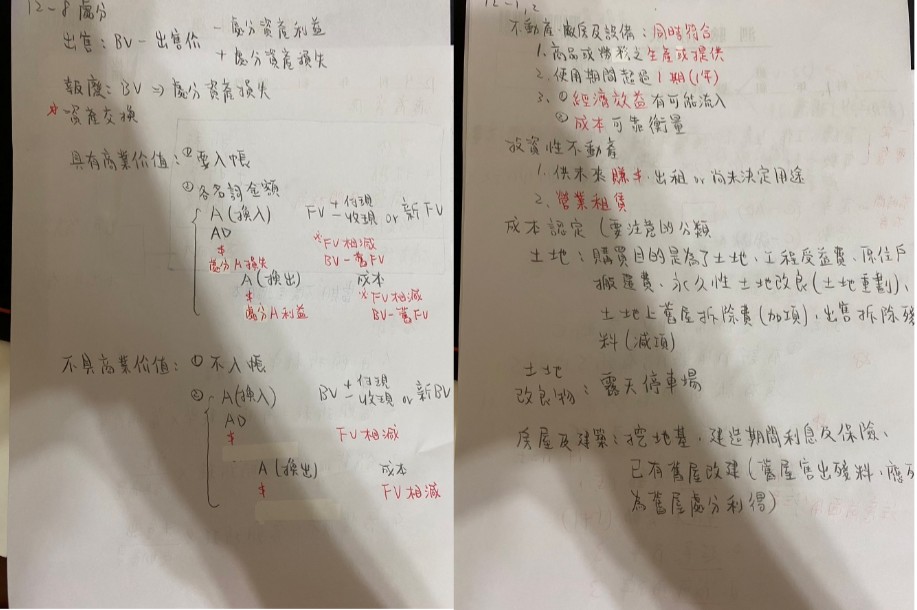 12-8 處分
出售：BV－出售价 － 處分資產利益
＋處分資產損失
報廢：BV ⇒ 處分資產損失
*資產交換
具有商業价值：① 要入帳
② 各名詞金額
A（換入） FV ＋付現 －收現 or 新FV
AD
$ *FV相減
處分A損失 BV－舊FV
A（換出） 成本
$ *FV相減
處分A利益 BV－舊FV
不具商業价值：① 不入帳
② A（換入） BV ＋付現 －收現 or 新BV
AD
$ FV相減
A（換出） 成本
$ FV相減
12-1,2
不動產、廠房及設備：同時符合
1. 商品或勞務之生產或提供
2. 使用期間超過1期(1年)
3. ① 經濟效益有可能流入
② 成本可靠衡量
投資性不動產
1. 供未來賺$、出租 or 尚未決定用途
2. 營業租賃
成本認定（要注意的分類
土地：購買目的是為了土地、工程受益費、原住戶
搬遷費、永久性土地改良(土地重劃)、
土地上舊屋拆除費(加項)、出售拆除殘
料(減項)
土地
改良物：露天停車場
房屋及建築：挖地基、建造期間利息及保險、
已有舊屋改建(舊屋售出殘料，應
為舊屋處分利得)